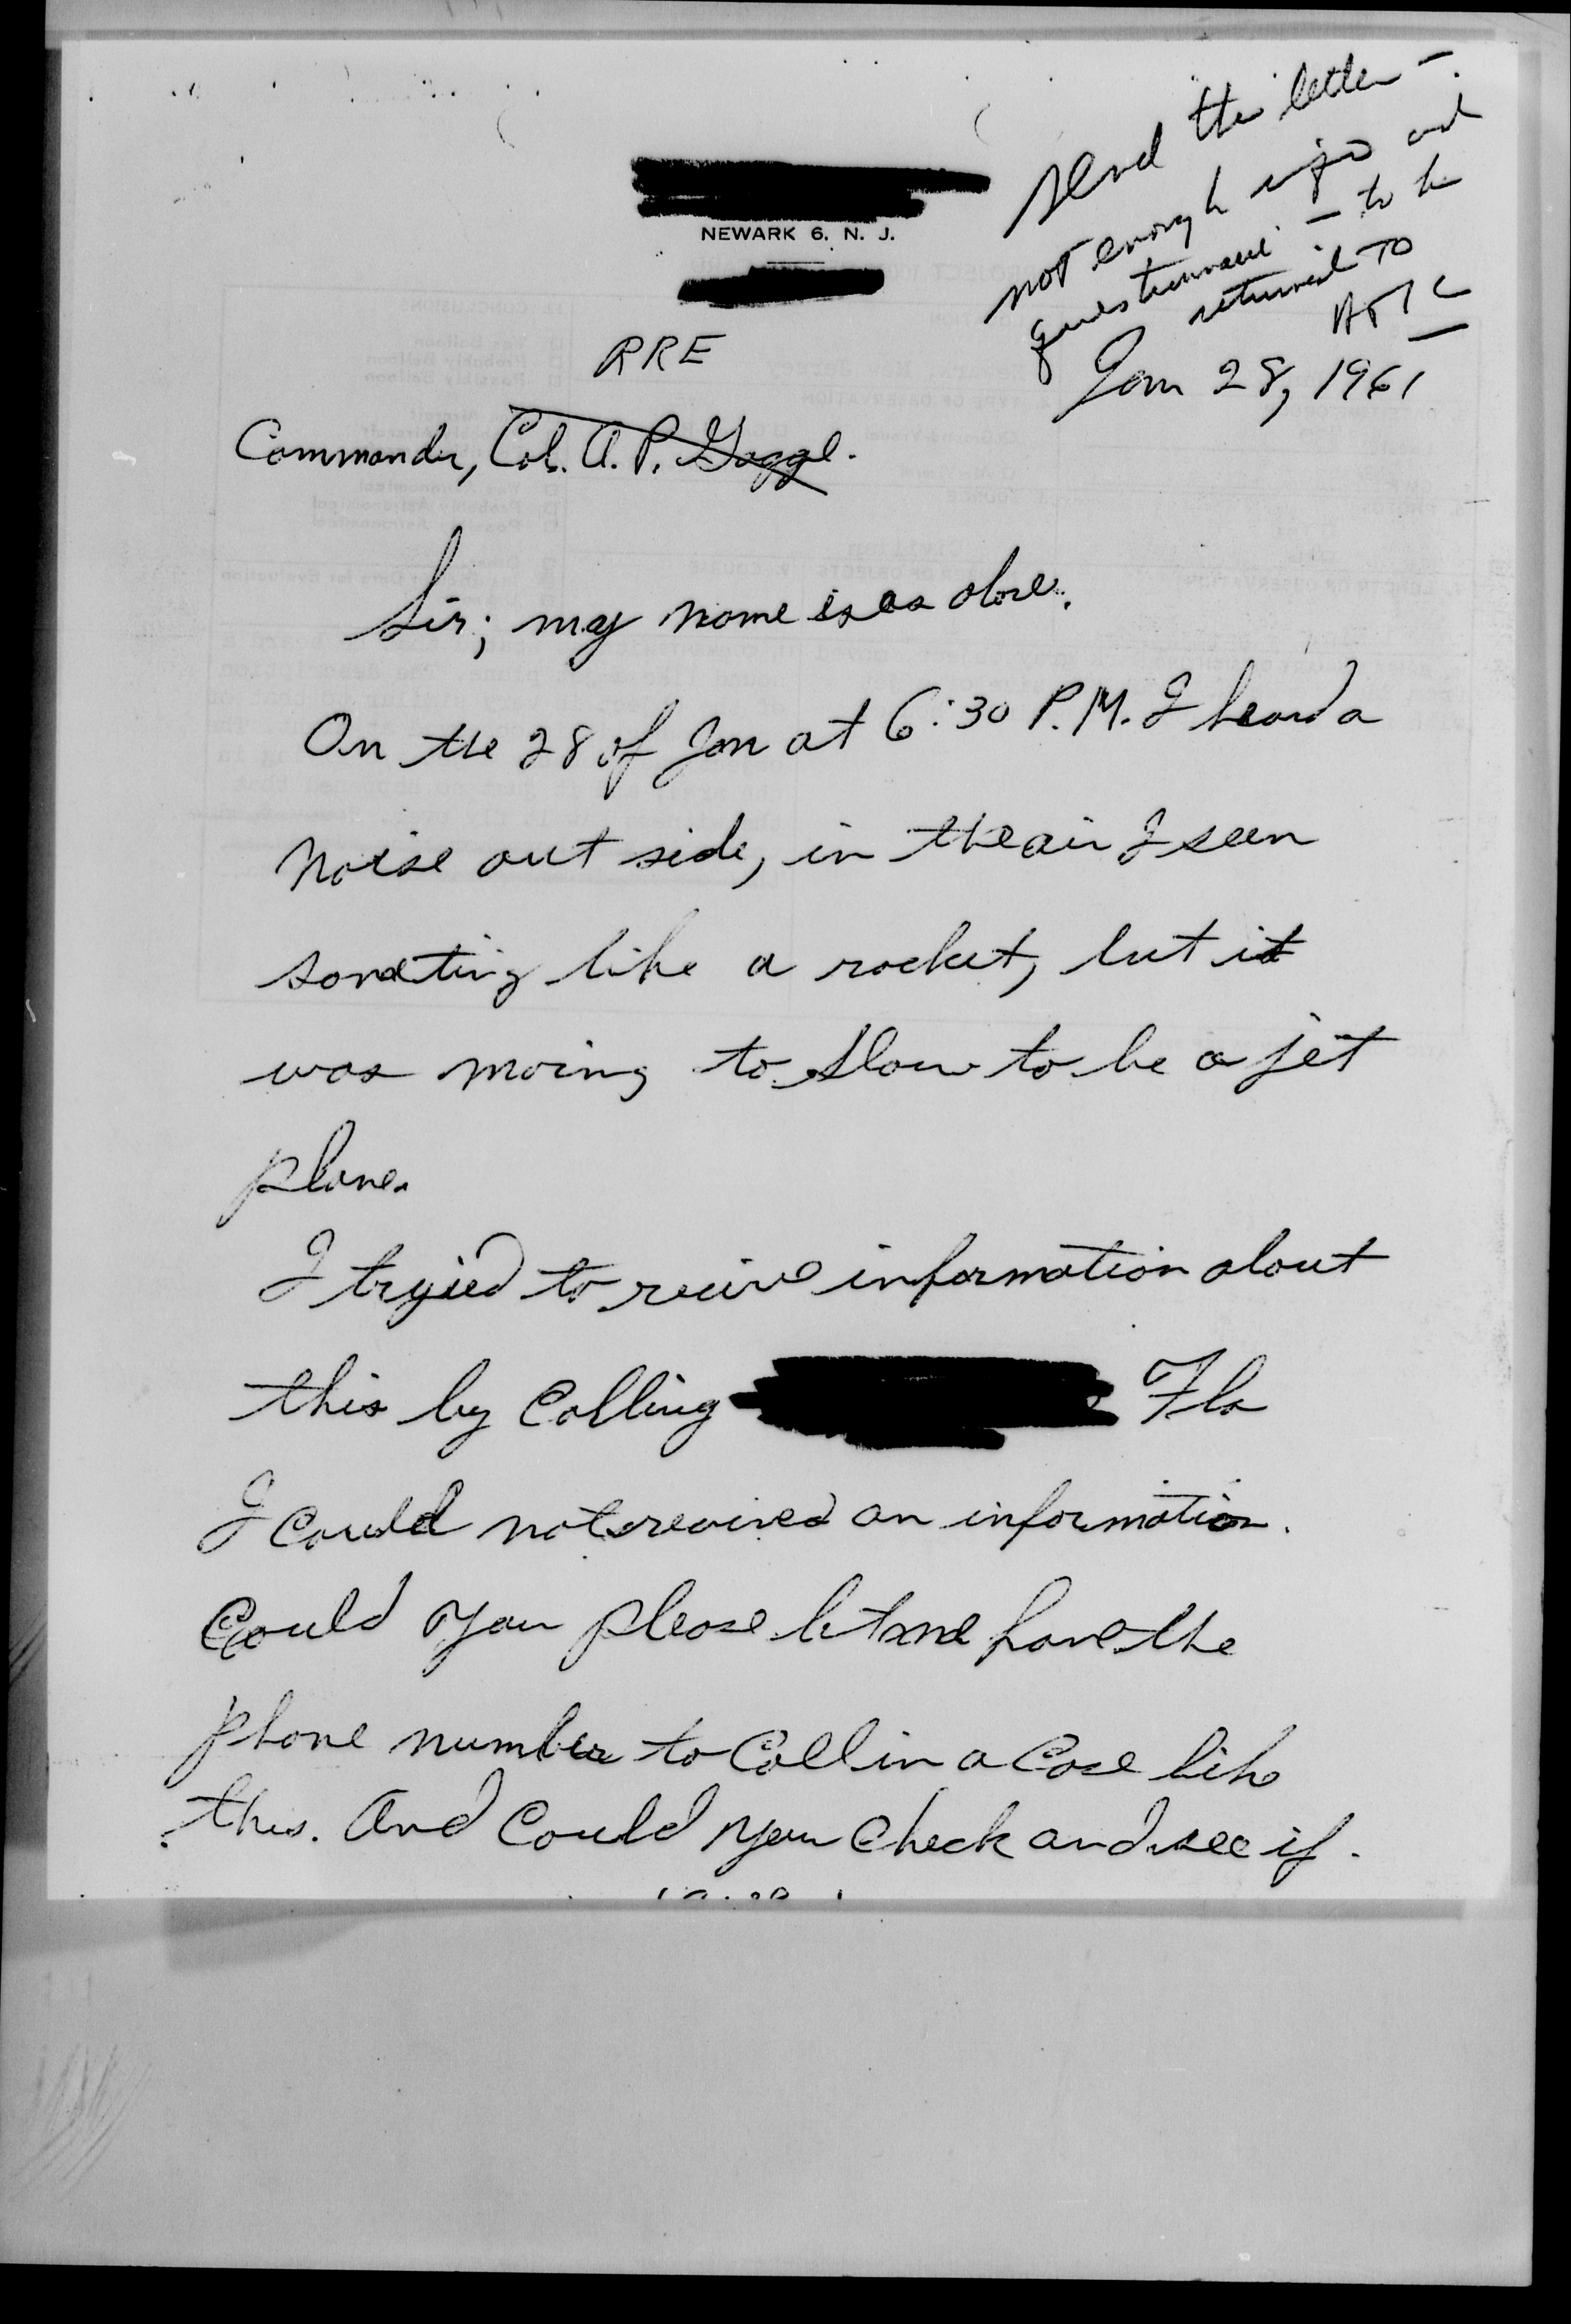 send the letter -
not enough info and
questionnaire - to be
returned to
ATIC
NEWARK 6. N. J.
RRE
Jan 28, 1961
Commander, Col. A. P.
Sir; my name is as abve.
On the 28 of Jan at 6:30 P.M. I heard a
noise out side, in the air I seen
someting like a rocket, but it
was moving to slow to be a jet
plane.
I tryied to recive information about
this by calling Fla
I could not recived an information.
Could you please let me have the
phone number to call in a case like
this. And could you check and see if